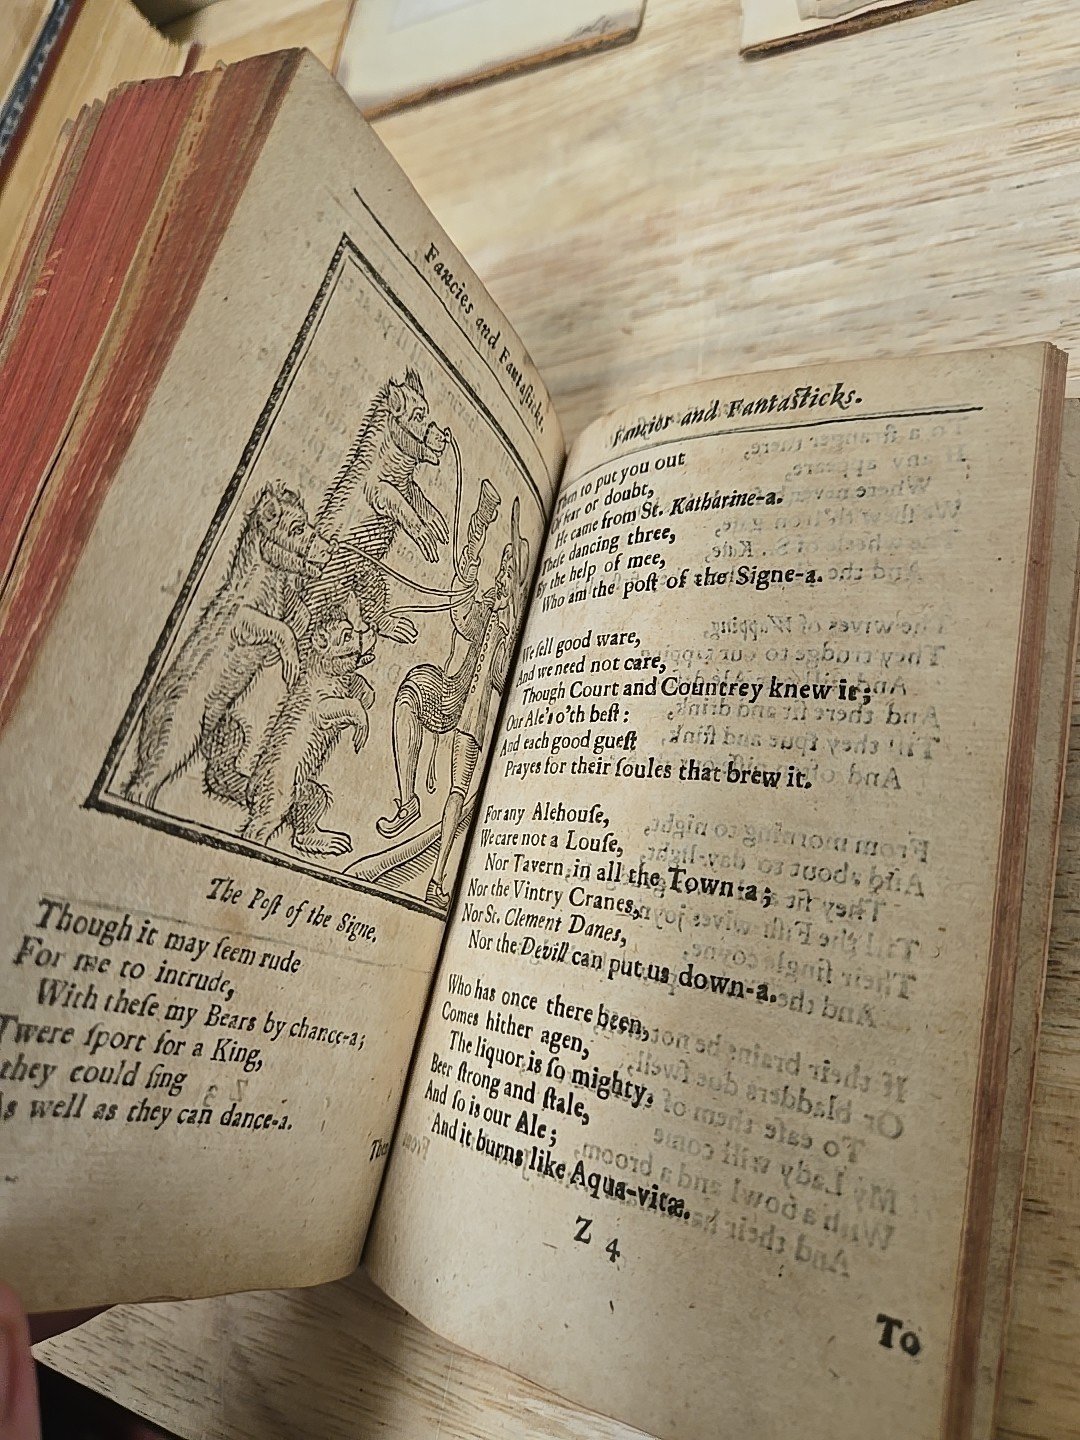 Fancies and Fantaſticks.
The Poſt of the Signe.
Though it may ſeem rude
For me to intrude,
With theſe my Bears by chance-a;
Twere ſport for a King,
they could ſing
As well as they can dance-a.
Then
Fancies and Fantaſticks.
Then to put you out
Of fear or doubt,
He came from St. Katharine-a.
Theſe dancing three,
By the help of mee,
Who am the poſt of the Signe-a.
We ſell good ware,
And we need not care,
Though Court and Countrey knew it;
Our Ale's o'th beſt:
And each good gueſt
Prayes for their ſoules that brew it.
For any Alehouſe,
We care not a Louſe,
Nor Tavern in all the Town-a;
Nor the Vintry Cranes,
Nor St. Clement Danes,
Nor the Devill can put us down-a.
Who has once there been,
Comes hither agen,
The liquor is ſo mighty.
Beer ſtrong and ſtale,
And ſo is our Ale;
And it burns like Aqua-vitæ.
Z 4
To